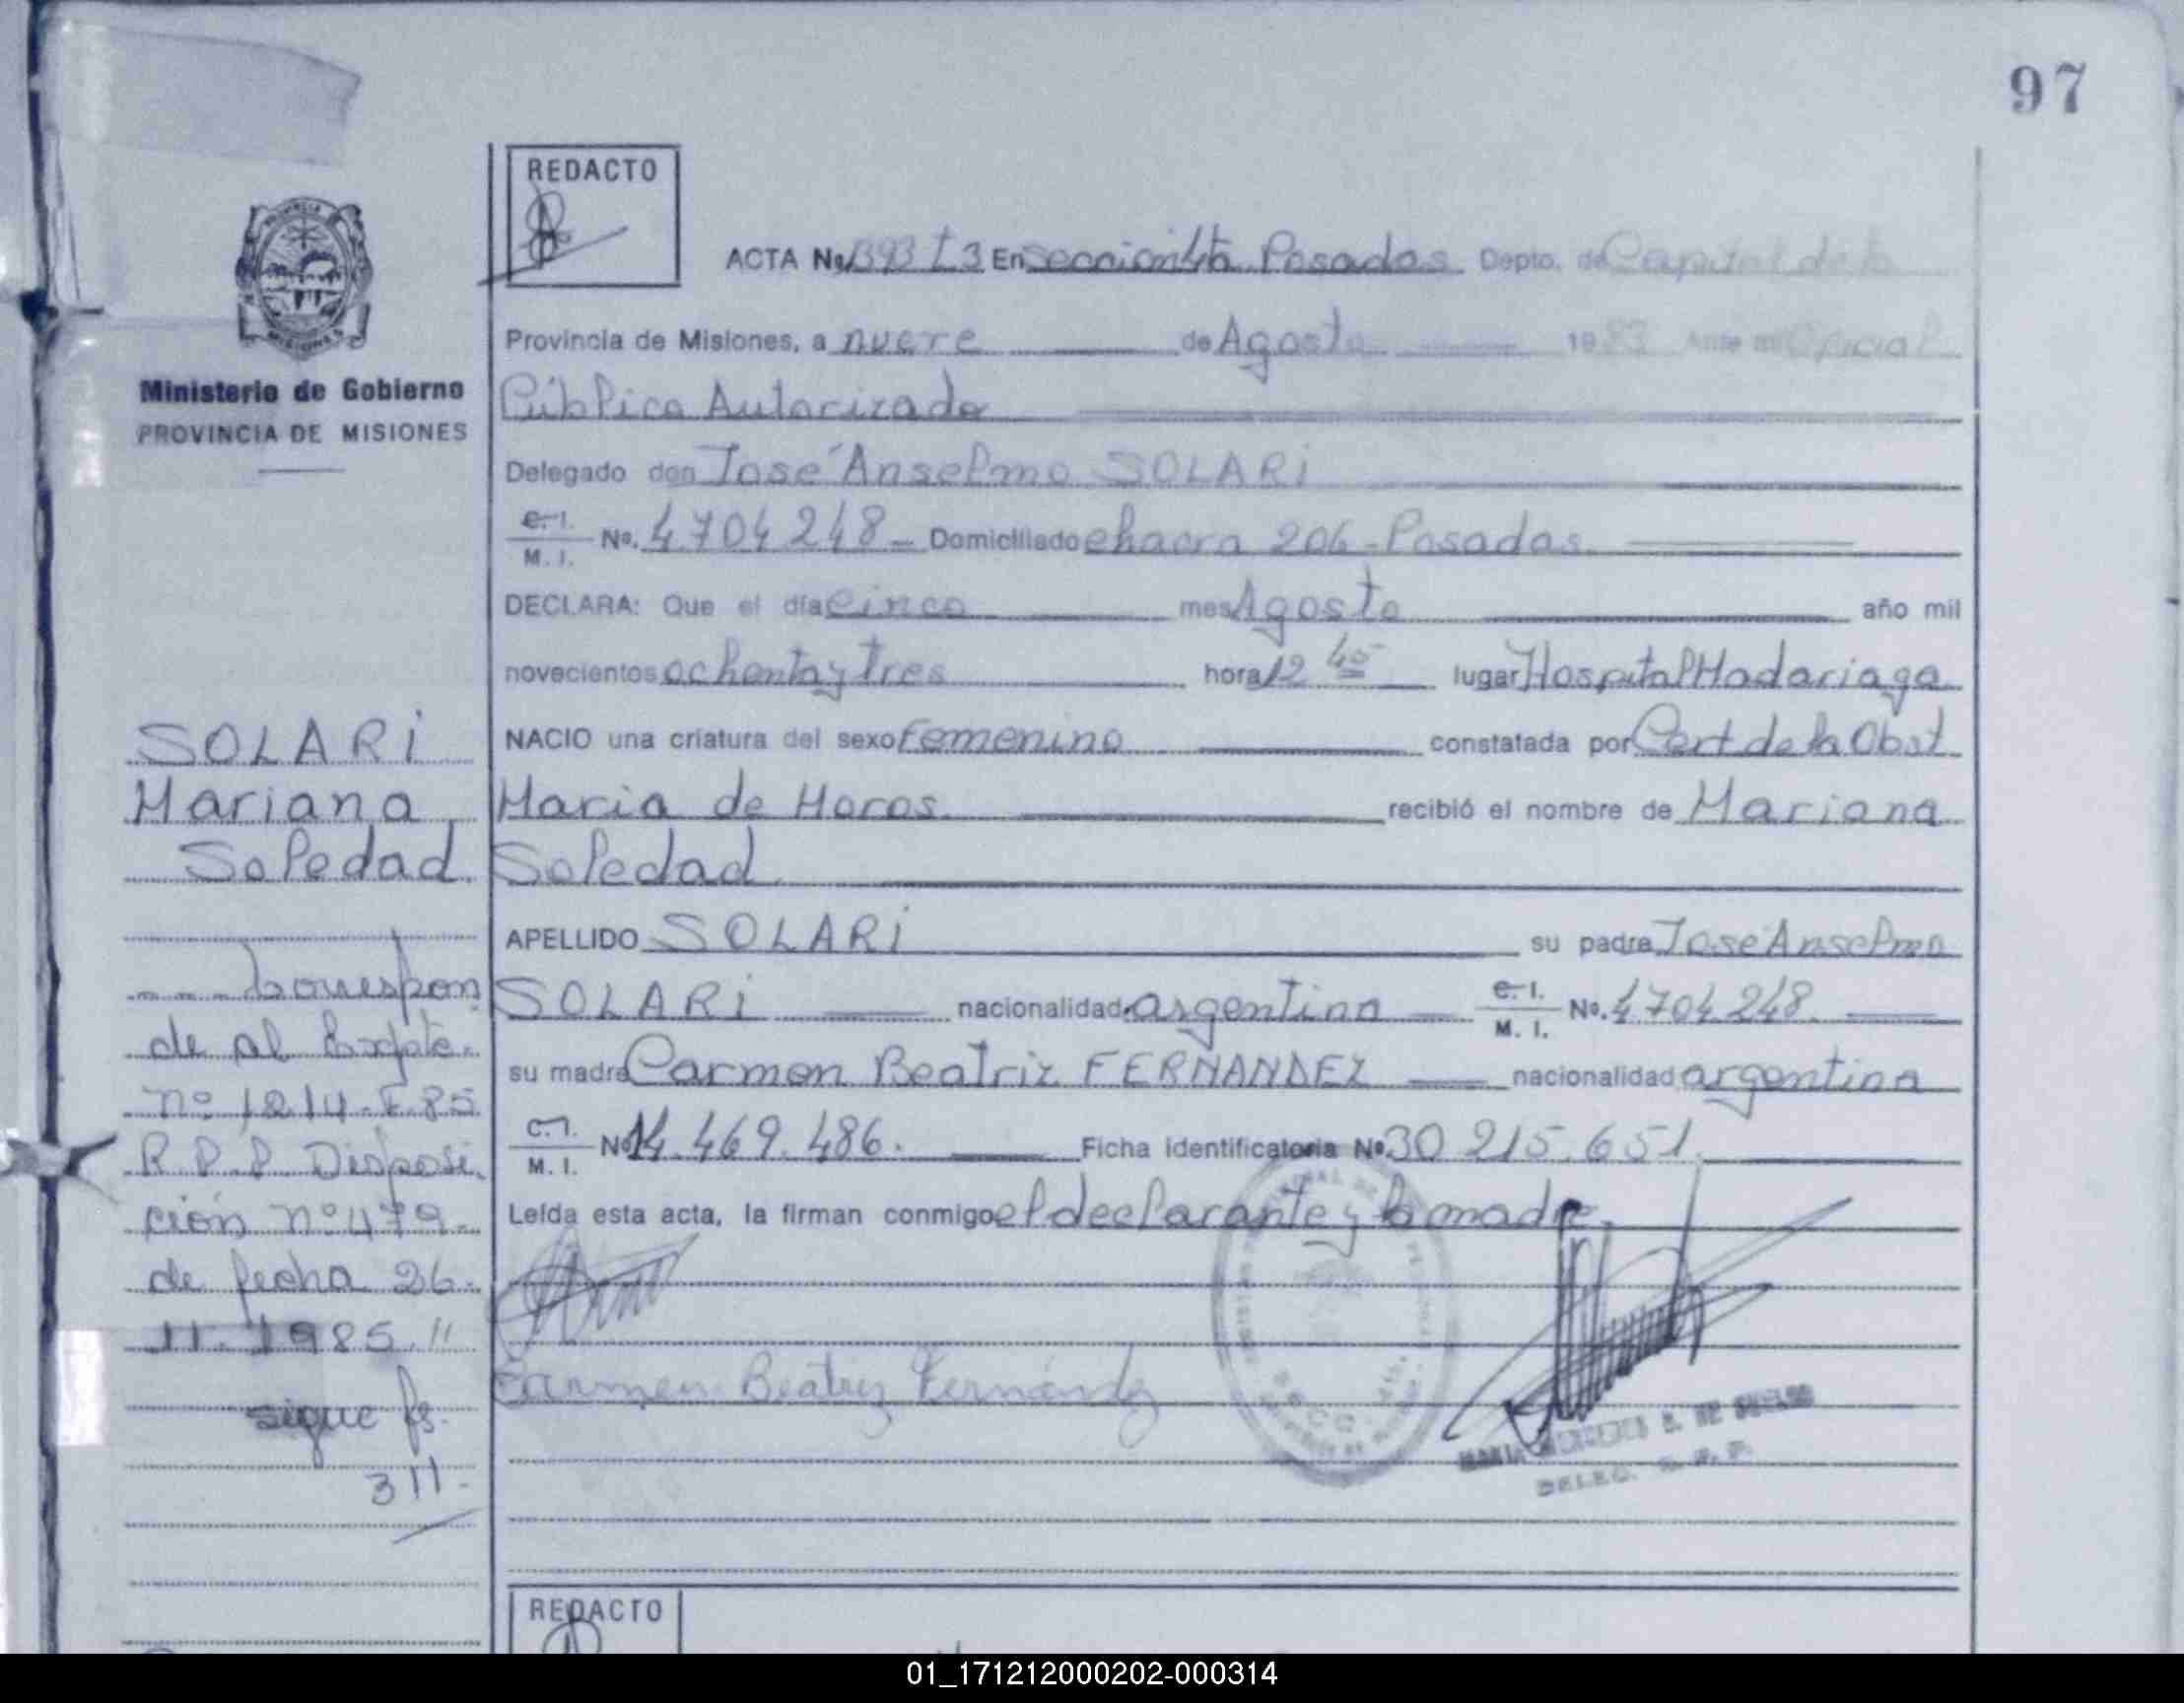 97
REDACTO
ACTA No. 1393 T 3 En sección 4ta Posadas Depto. de Capital de la
Provincia de Misiones, a nueve de Agosto 1983 Ante mi Oficial
Público Autorizado
Ministerio de Gobierno
PROVINCIA DE MISIONES
Delegado don José Anselmo SOLARI
C. I.
M. I. No. 4.704.248 - Domiciliado chacra 206 - Posadas.
DECLARA: Que el día cinco mes Agosto año mil
novecientos ochenta y tres hora 12 45 lugar Hospital Madariaga
NACIO una criatura del sexo Femenino constatada por Cert de la Obst
Maria de Moros. recibió el nombre de Mariana
Soledad
APELLIDO SOLARI su padre José Anselmo
SOLARI nacionalidad argentina C. I.
M. I. No. 4.704.248.
su madre Carmen Beatriz FERNANDEZ nacionalidad argentina
C. I.
M. I. No. 14.469.486. Ficha identificatoria No. 30.215.651.
Leída esta acta, la firman conmigo el declarante y la madre.
Carmen Beatriz Fernández
DELEG. R. P. P.
SOLARI
Mariana
Soledad
--- Correspon
de al Expte.
nº 1214-F-85
R.P.P. Disposi
ción nº 479-
de fecha 26-
11-1985.//
sigue fs.
311.-
REDACTO
01_171212000202-000314